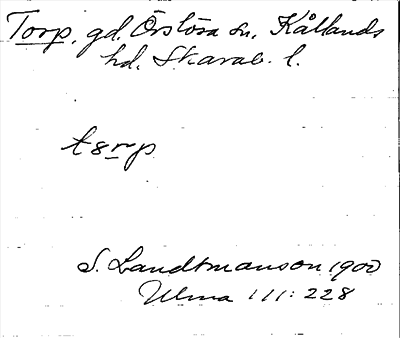 Torp. gd. Örslösa sn. Kållands
hd. Skarab. l.
t8rp
S. Landtmanson 1900
Ulma 111:228